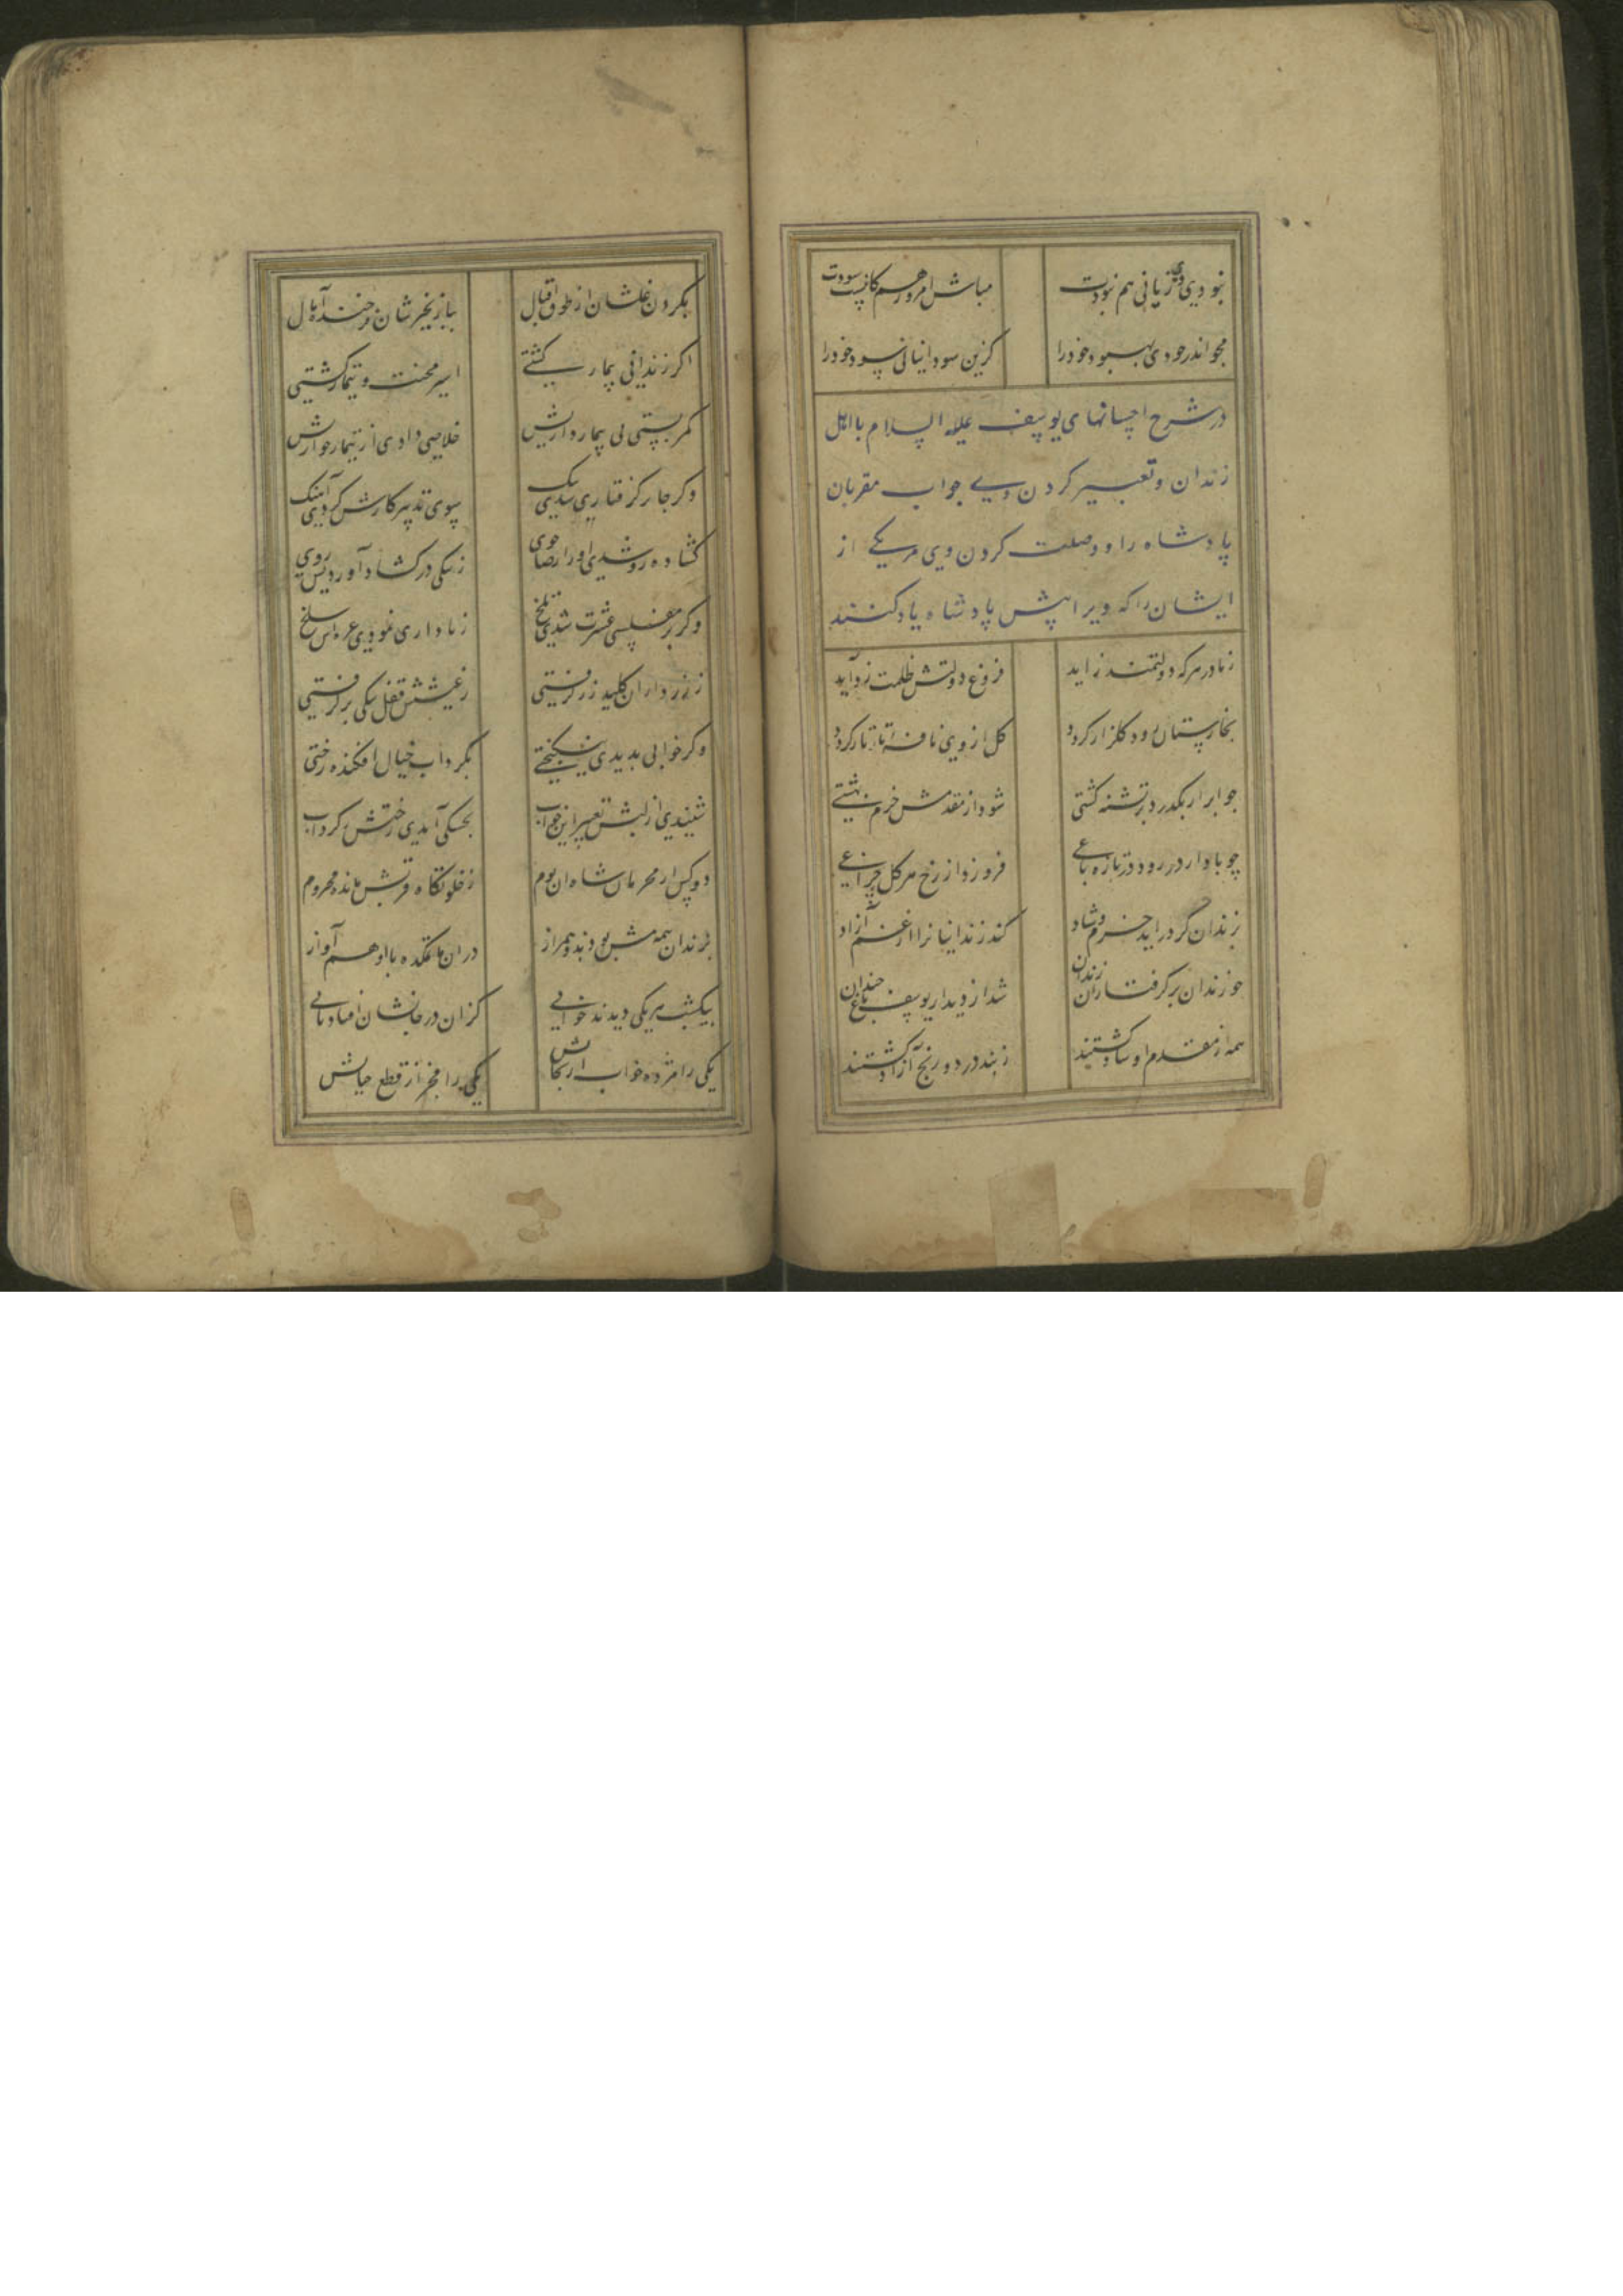 نبودی دی زیانی هم نبودت مباش امروز هم کانست سودت
مجو اندر خودی بهبود خود را کزین سودا نیابی سود خود را
در شرح احسانهای یوسف علیه السلام با اهل
زندان و تعبیر کردن وی جواب مقربان
پادشاه را و وصلت کردن وی مر یکی از
ایشان را که ویرا پیش پادشاه یاد کنند
ز مادر هر که دولتمند زاید فروغ دولتش ظلمت زداید
بخارستان رود گلزار گردد گل از وی نافه تاتار گردد
چو ابر ار بگذرد بر تشنه کشتی شود از مقدمش خرم بهشتی
چو باد ار در رود در تازه باغی فروزد از رخ هر گل چراغی
بزندان گر در آید خرم و شاد کند زندانیانرا از غم آزاد
چو زندان بر گرفتاران زندان شد از دیدار یوسف باغ خندان
همه از مقدم او شاد گشتند ز بند درد و رنج آزاد گشتند
بگردن غلشان از طوق اقبال بپا زنجیرشان فرخنده خلخال
اگر زندانیی بیمار گشتی اسیر محنت و تیمار گشتی
کمر بستی پی بیمارداریش خلاصی دادی از تیمار خواریش
وگر جا بر گرفتاری شدی تنگ سوی تدبیر کارش کردی آهنگ
گشاده رو شدی او را رضاجوی ز تنگی در گشاد آوردیش روی
وگر بر مفلسی عشرت شدی تلخ ز ناداری نمودی غره اش سلخ
ز زرداران کلید زر گرفتی ز عیشش قفل تنگی بر گرفتی
وگر خوابی بدیدی نیکبختی بگرداب خیال افکنده رختی
شنیدی از لبش تعبیر این خواب بخشکی آمدی رختش ز گرداب
دو کس از محرمان شاه آن بوم ز خلوتگاه قربش مانده محروم
بزندان همدمش بودند و همراز در آن ماتمکده با او هم آواز
بیکشب هر یکی دیدند خوابی کزان در جانشان افتاد تابی
یکی را مژده خواب از نجاتش یکی را مخبر از قطع حیاتش